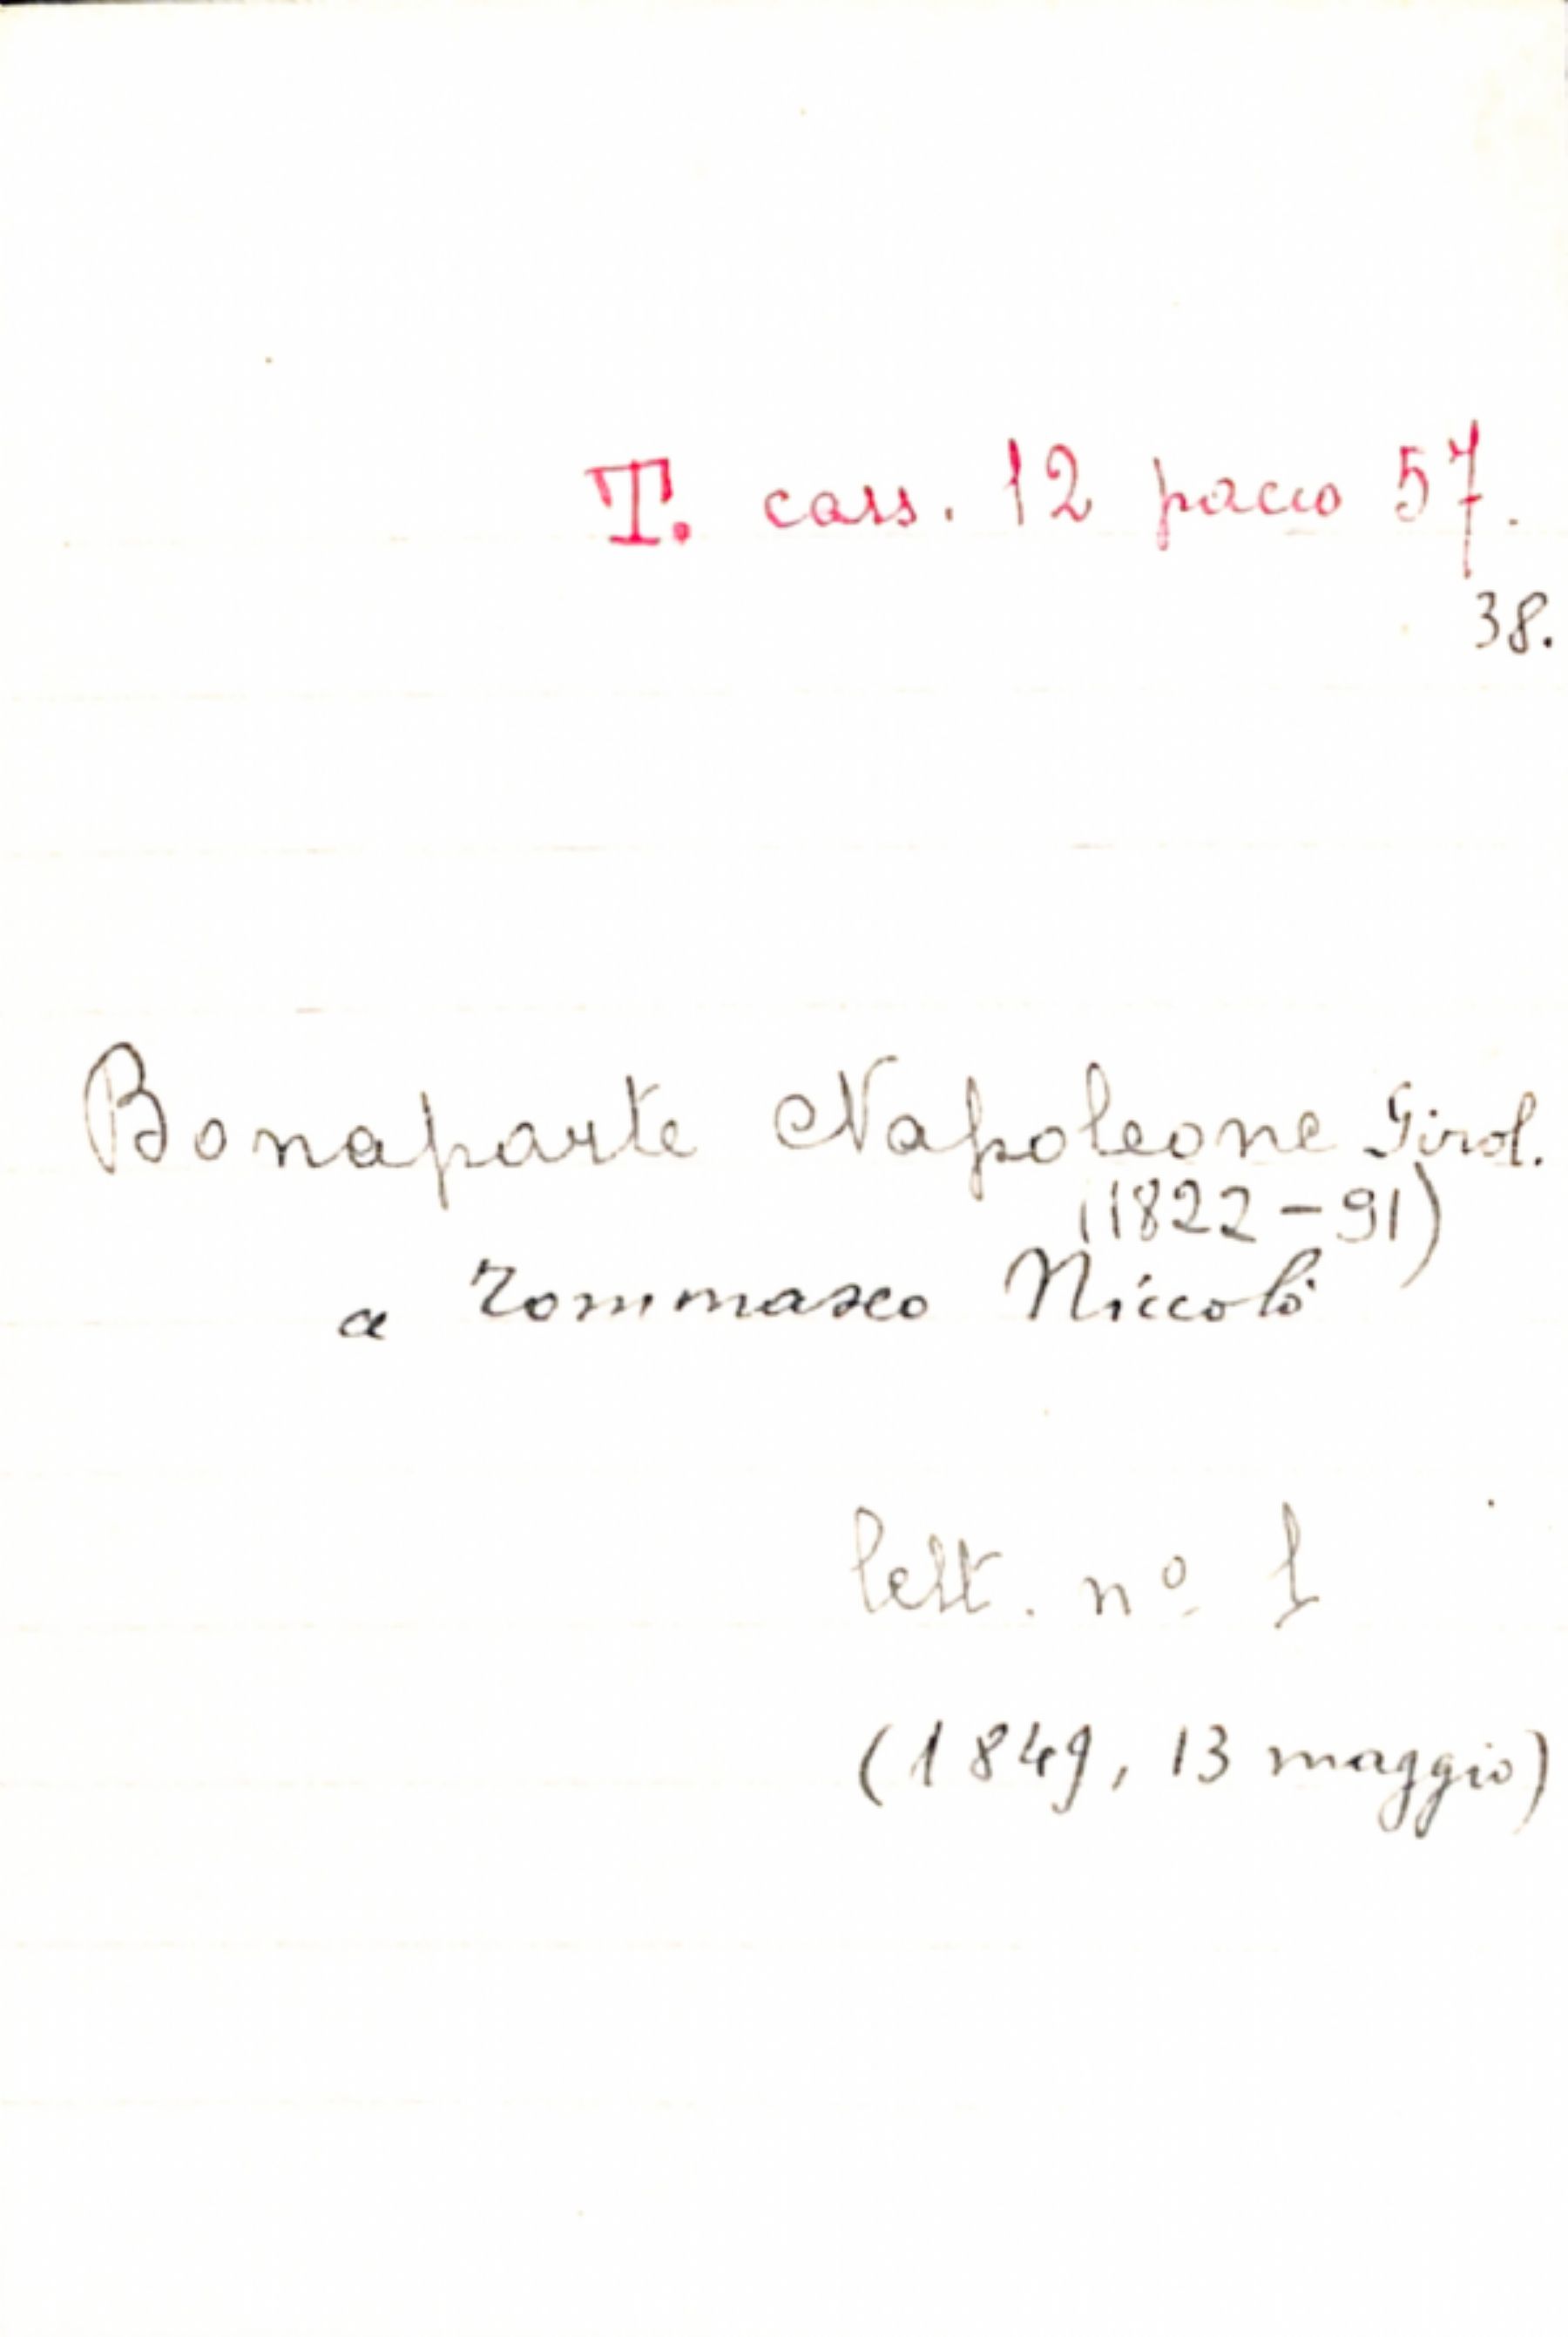 T. cass. 12 pacco 57.
38.
Bonaparte Napoleone Girol.
(1822-91)
a Tommaseo Niccolò
lett. nº 1
(1849, 13 maggio)